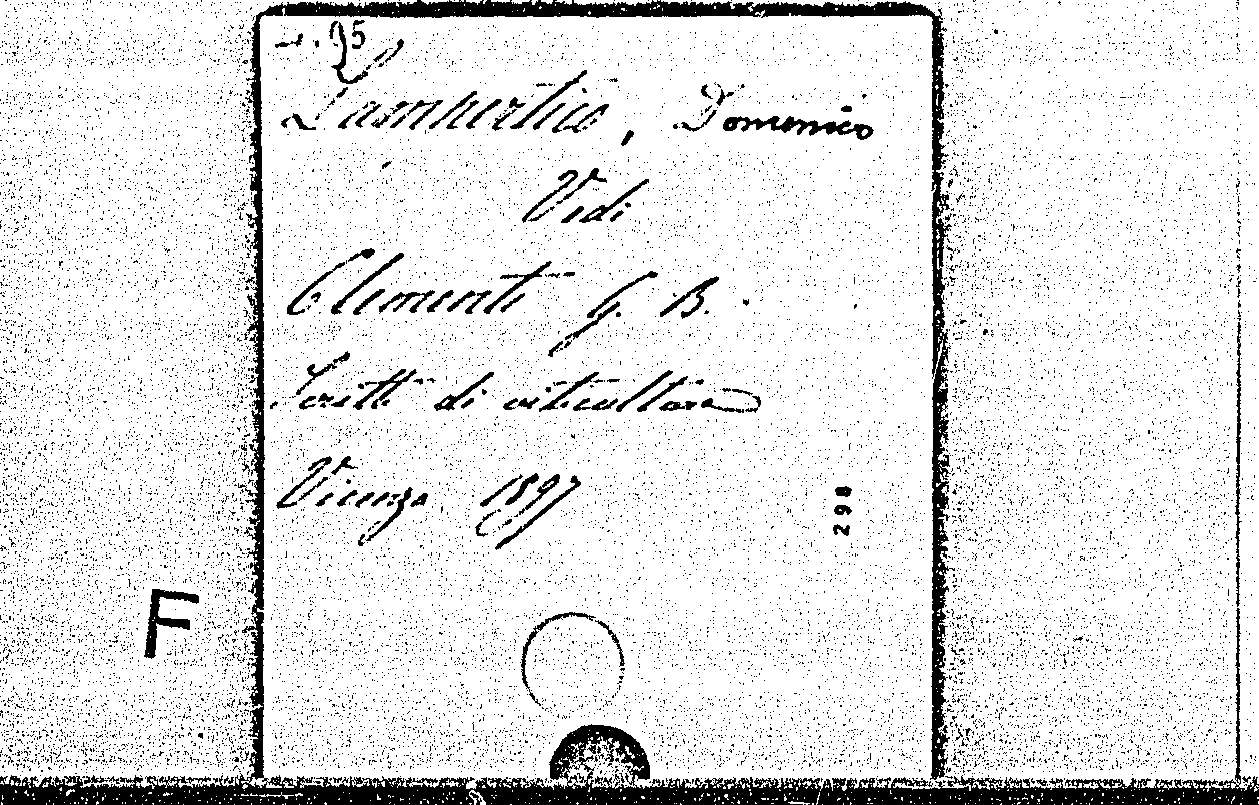 95
Lampertico, Domenico
Vedi
Clementi G. B.
Scritti di viticoltura
Vicenza 1897
298
F